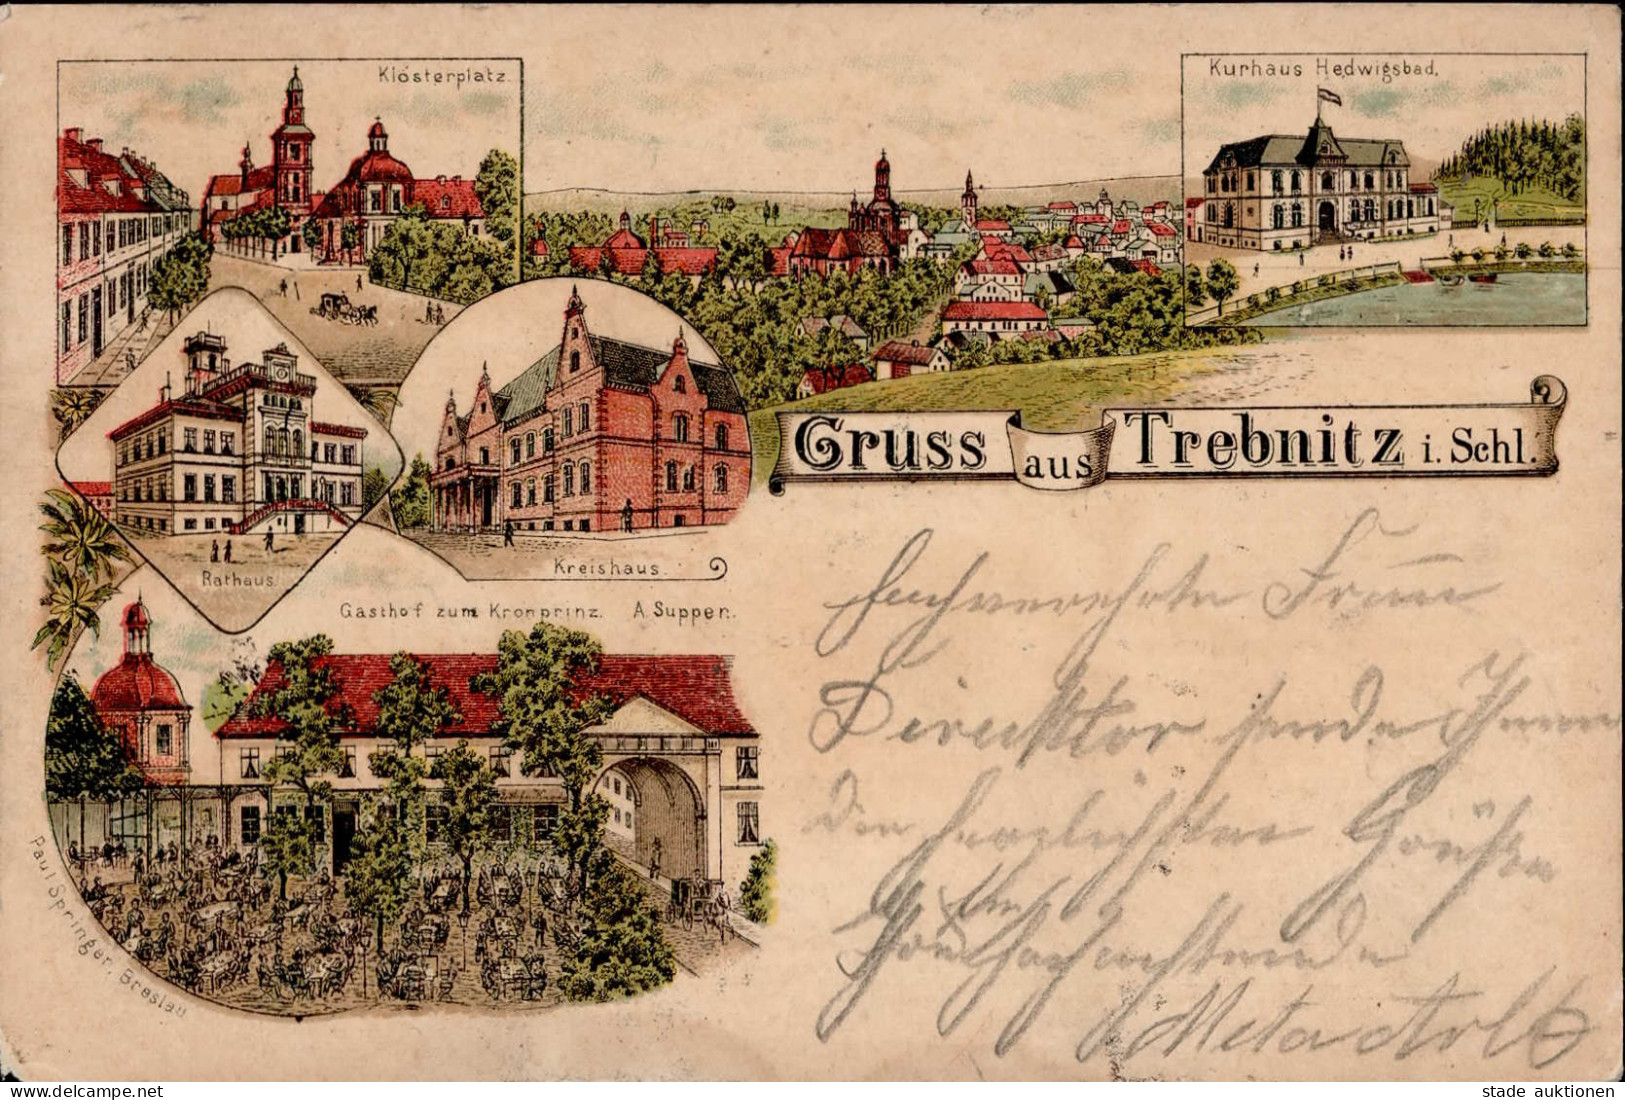 Klosterplatz.
Kurhaus Hedwigsbad.
Gruss aus Trebnitz i. Schl.
Rathaus.
Kreishaus.
Gasthof zum Kronprinz. A. Supper.
Paul Springer, Breslau
Hochverehrte Frau
Direktor sende Ihnen
die herzlichsten Grüße
Ihre
Hochachtende
Meta
stade auktionen